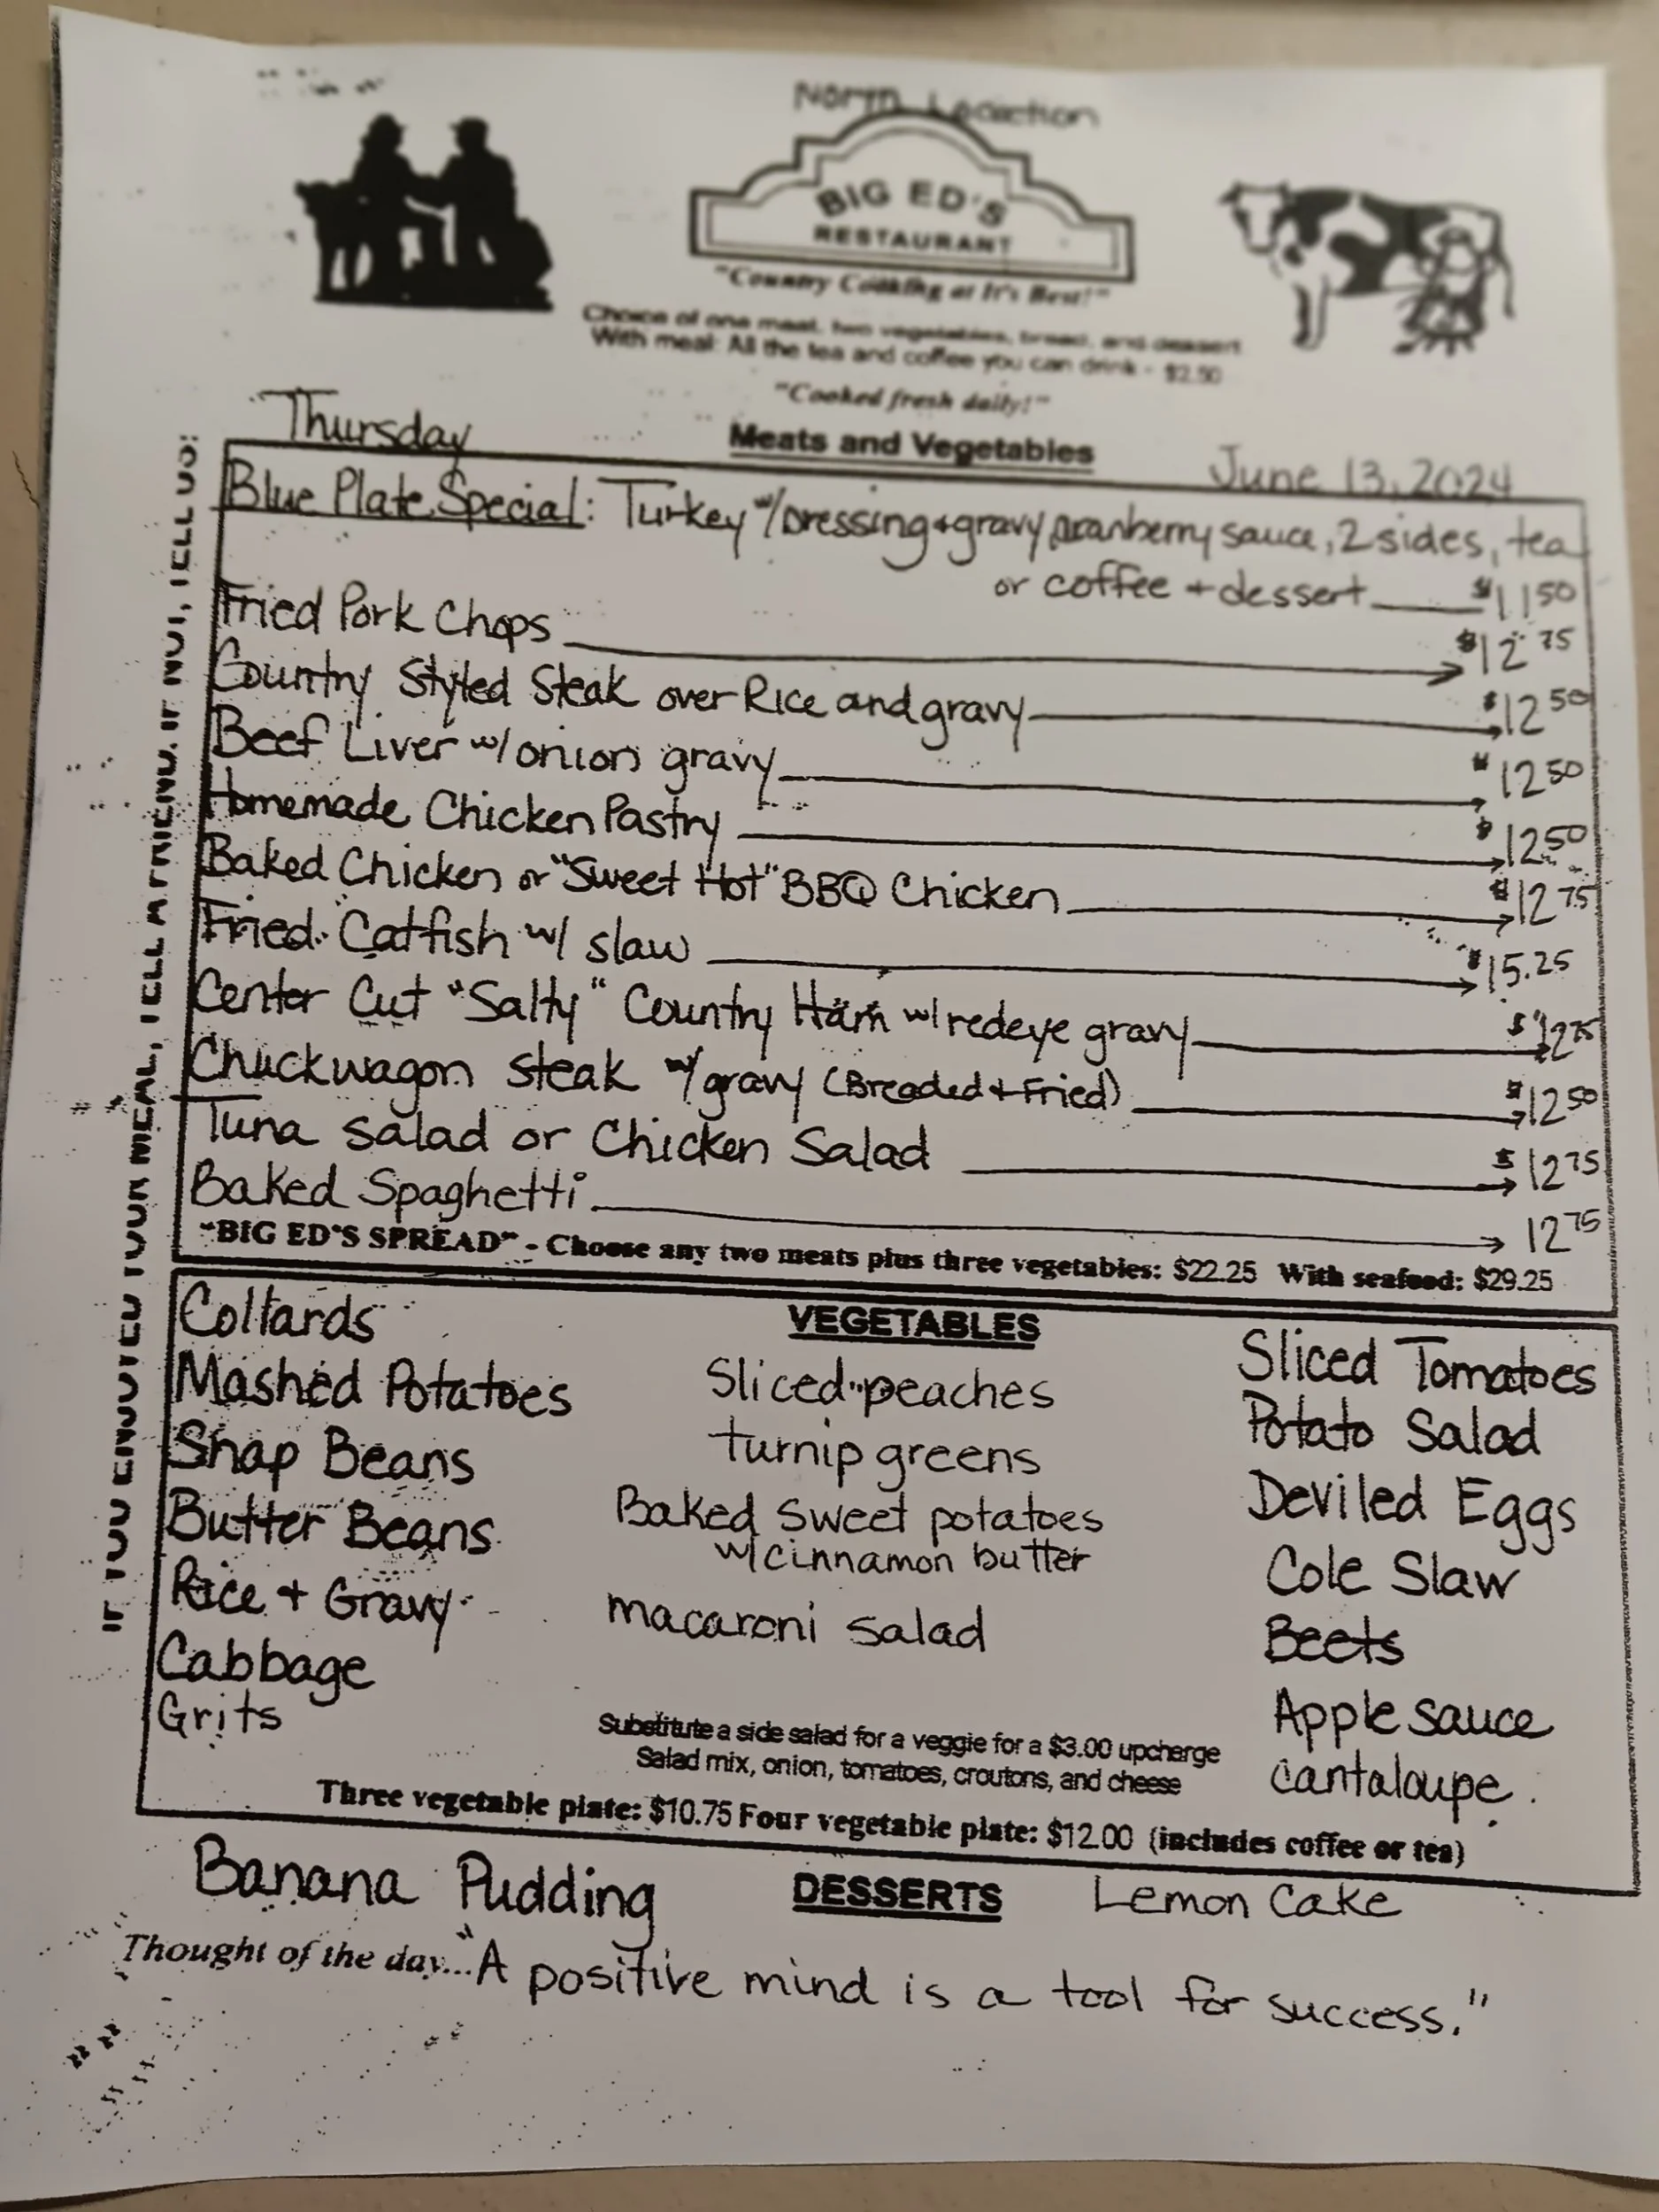 North Location
BIG ED'S
RESTAURANT
"Country Cooking at It's Best!"
Choice of one meat, two vegetables, bread, and dessert
With meal: All the tea and coffee you can drink - $2.50
"Cooked fresh daily!"
Thursday
Meats and Vegetables
June 13, 2024
Blue Plate Special: Turkey w/Dressing + gravy, cranberry sauce, 2 sides, tea
or coffee + dessert $11 50
Fried Pork Chops $12 75
Country Styled Steak over Rice and gravy $12 50
Beef Liver w/ onion gravy $12 50
Homemade Chicken Pastry $12 50
Baked Chicken or "Sweet Hot" BBQ Chicken $12 75
Fried Catfish w/ slaw $15.25
Center Cut "Salty" Country Ham w/ redeye gravy $12 75
Chuckwagon steak w/gravy (Breaded + Fried) $12 50
Tuna salad or Chicken Salad $12 75
Baked Spaghetti 12 75
"BIG ED'S SPREAD" - Choose any two meats plus three vegetables: $22.25 With seafood: $29.25
IF YOU ENJOYED YOUR MEAL, TELL A FRIEND. IF NOT, TELL US!
VEGETABLES
Collards
Mashed Potatoes
Snap Beans
Butter Beans
Rice + Gravy
Cabbage
Grits
Sliced peaches
turnip greens
Baked Sweet potatoes
w/cinnamon butter
macaroni salad
Sliced Tomatoes
Potato Salad
Deviled Eggs
Cole Slaw
Beets
Apple sauce
cantaloupe
Substitute a side salad for a veggie for a $3.00 upcharge
Salad mix, onion, tomatoes, croutons, and cheese
Three vegetable plate: $10.75 Four vegetable plate: $12.00 (includes coffee or tea)
Banana Pudding
DESSERTS
Lemon Cake
Thought of the day... "A positive mind is a tool for success."